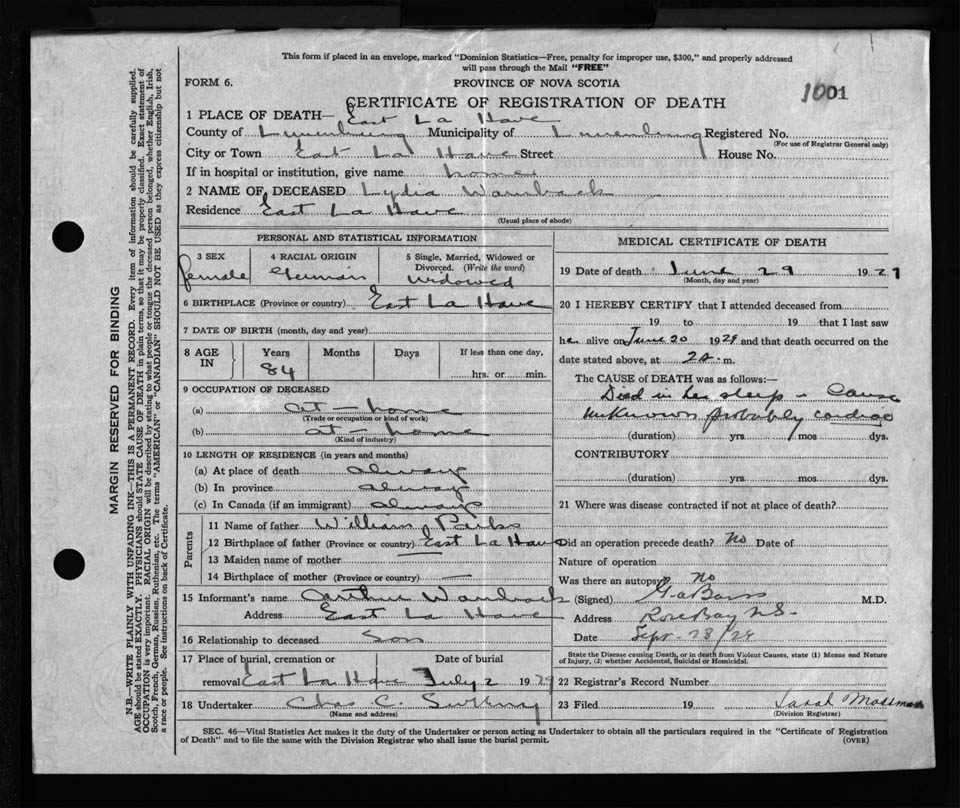 This form if placed in an envelope, marked "Dominion Statistics—Free, penalty for improper use, $300," and properly addressed
will pass through the Mail "FREE"
FORM 6.
PROVINCE OF NOVA SCOTIA
CERTIFICATE OF REGISTRATION OF DEATH
1001
1 PLACE OF DEATH— East La Have
County of Lunenburg Municipality of Lunenburg Registered No.
(For use of Registrar General only)
City or Town East La Have Street House No.
If in hospital or institution, give name home
2 NAME OF DECEASED Lydia Wambach
Residence East La Have
(Usual place of abode)
MARGIN RESERVED FOR BINDING
N.B.—WRITE PLAINLY WITH UNFADING INK—THIS IS A PERMANENT RECORD. Every item of information should be carefully supplied.
AGE should be stated EXACTLY. PHYSICIANS should STATE CAUSE OF DEATH in plain terms, so that it may be properly classified. Exact statement of
OCCUPATION is very important. RACIAL ORIGIN will be described by stating to what people or tongue the deceased person belonged, whether English, Irish,
Scotch, French, German, Russian, Ruthenian, etc. The terms "AMERICAN" or "CANADIAN" SHOULD NOT BE USED as they express citizenship but not
a race or people. See instructions on back of Certificate.
PERSONAL AND STATISTICAL INFORMATION
3 SEX
female
4 RACIAL ORIGIN
German
5 Single, Married, Widowed or
Divorced. (Write the word)
Widowed
6 BIRTHPLACE (Province or country) East La Have
7 DATE OF BIRTH (month, day and year)
8 AGE IN
Years Months Days If less than one day,
84 hrs. or min.
9 OCCUPATION OF DECEASED
(a) at - home
(Trade or occupation or kind of work)
(b) at - home
(Kind of industry)
10 LENGTH OF RESIDENCE (in years and months)
(a) At place of death always
(b) In province always
(c) In Canada (if an immigrant) always
Parents
11 Name of father William Parks
12 Birthplace of father (Province or country) East La Have
13 Maiden name of mother
14 Birthplace of mother (Province or country) —
15 Informant's name Arthur Wambach
Address East La Have
16 Relationship to deceased Son
17 Place of burial, cremation or Date of burial
removal East La Have July 2 1929
18 Undertaker Chas C.
(Name and address)
MEDICAL CERTIFICATE OF DEATH
19 Date of death June 29 1929
(Month, day and year)
20 I HEREBY CERTIFY that I attended deceased from
19 to 19 that I last saw
her alive on June 20 1929 and that death occurred on the
date stated above, at 2 a. m.
The CAUSE of DEATH was as follows:—
Died in her sleep - Cause
unknown probably cardiac
(duration) yrs. mos dys.
CONTRIBUTORY
(duration) yrs. mos. dys.
21 Where was disease contracted if not at place of death?
Did an operation precede death? No Date of
Nature of operation
Was there an autopsy no
(Signed) M.D.
Address Rose Bay N.S.
Date Sept. 28/29
State the Disease causing Death, or in death from Violent Causes, state (1) Means and Nature
of Injury, (2) whether Accidental, Suicidal or Homicidal.
22 Registrar's Record Number
23 Filed 19 Sarah Mossman
(Division Registrar)
SEC. 46—Vital Statistics Act makes it the duty of the Undertaker or person acting as Undertaker to obtain all the particulars required in the "Certificate of Registration
of Death" and to file the same with the Division Registrar who shall issue the burial permit. (OVER)